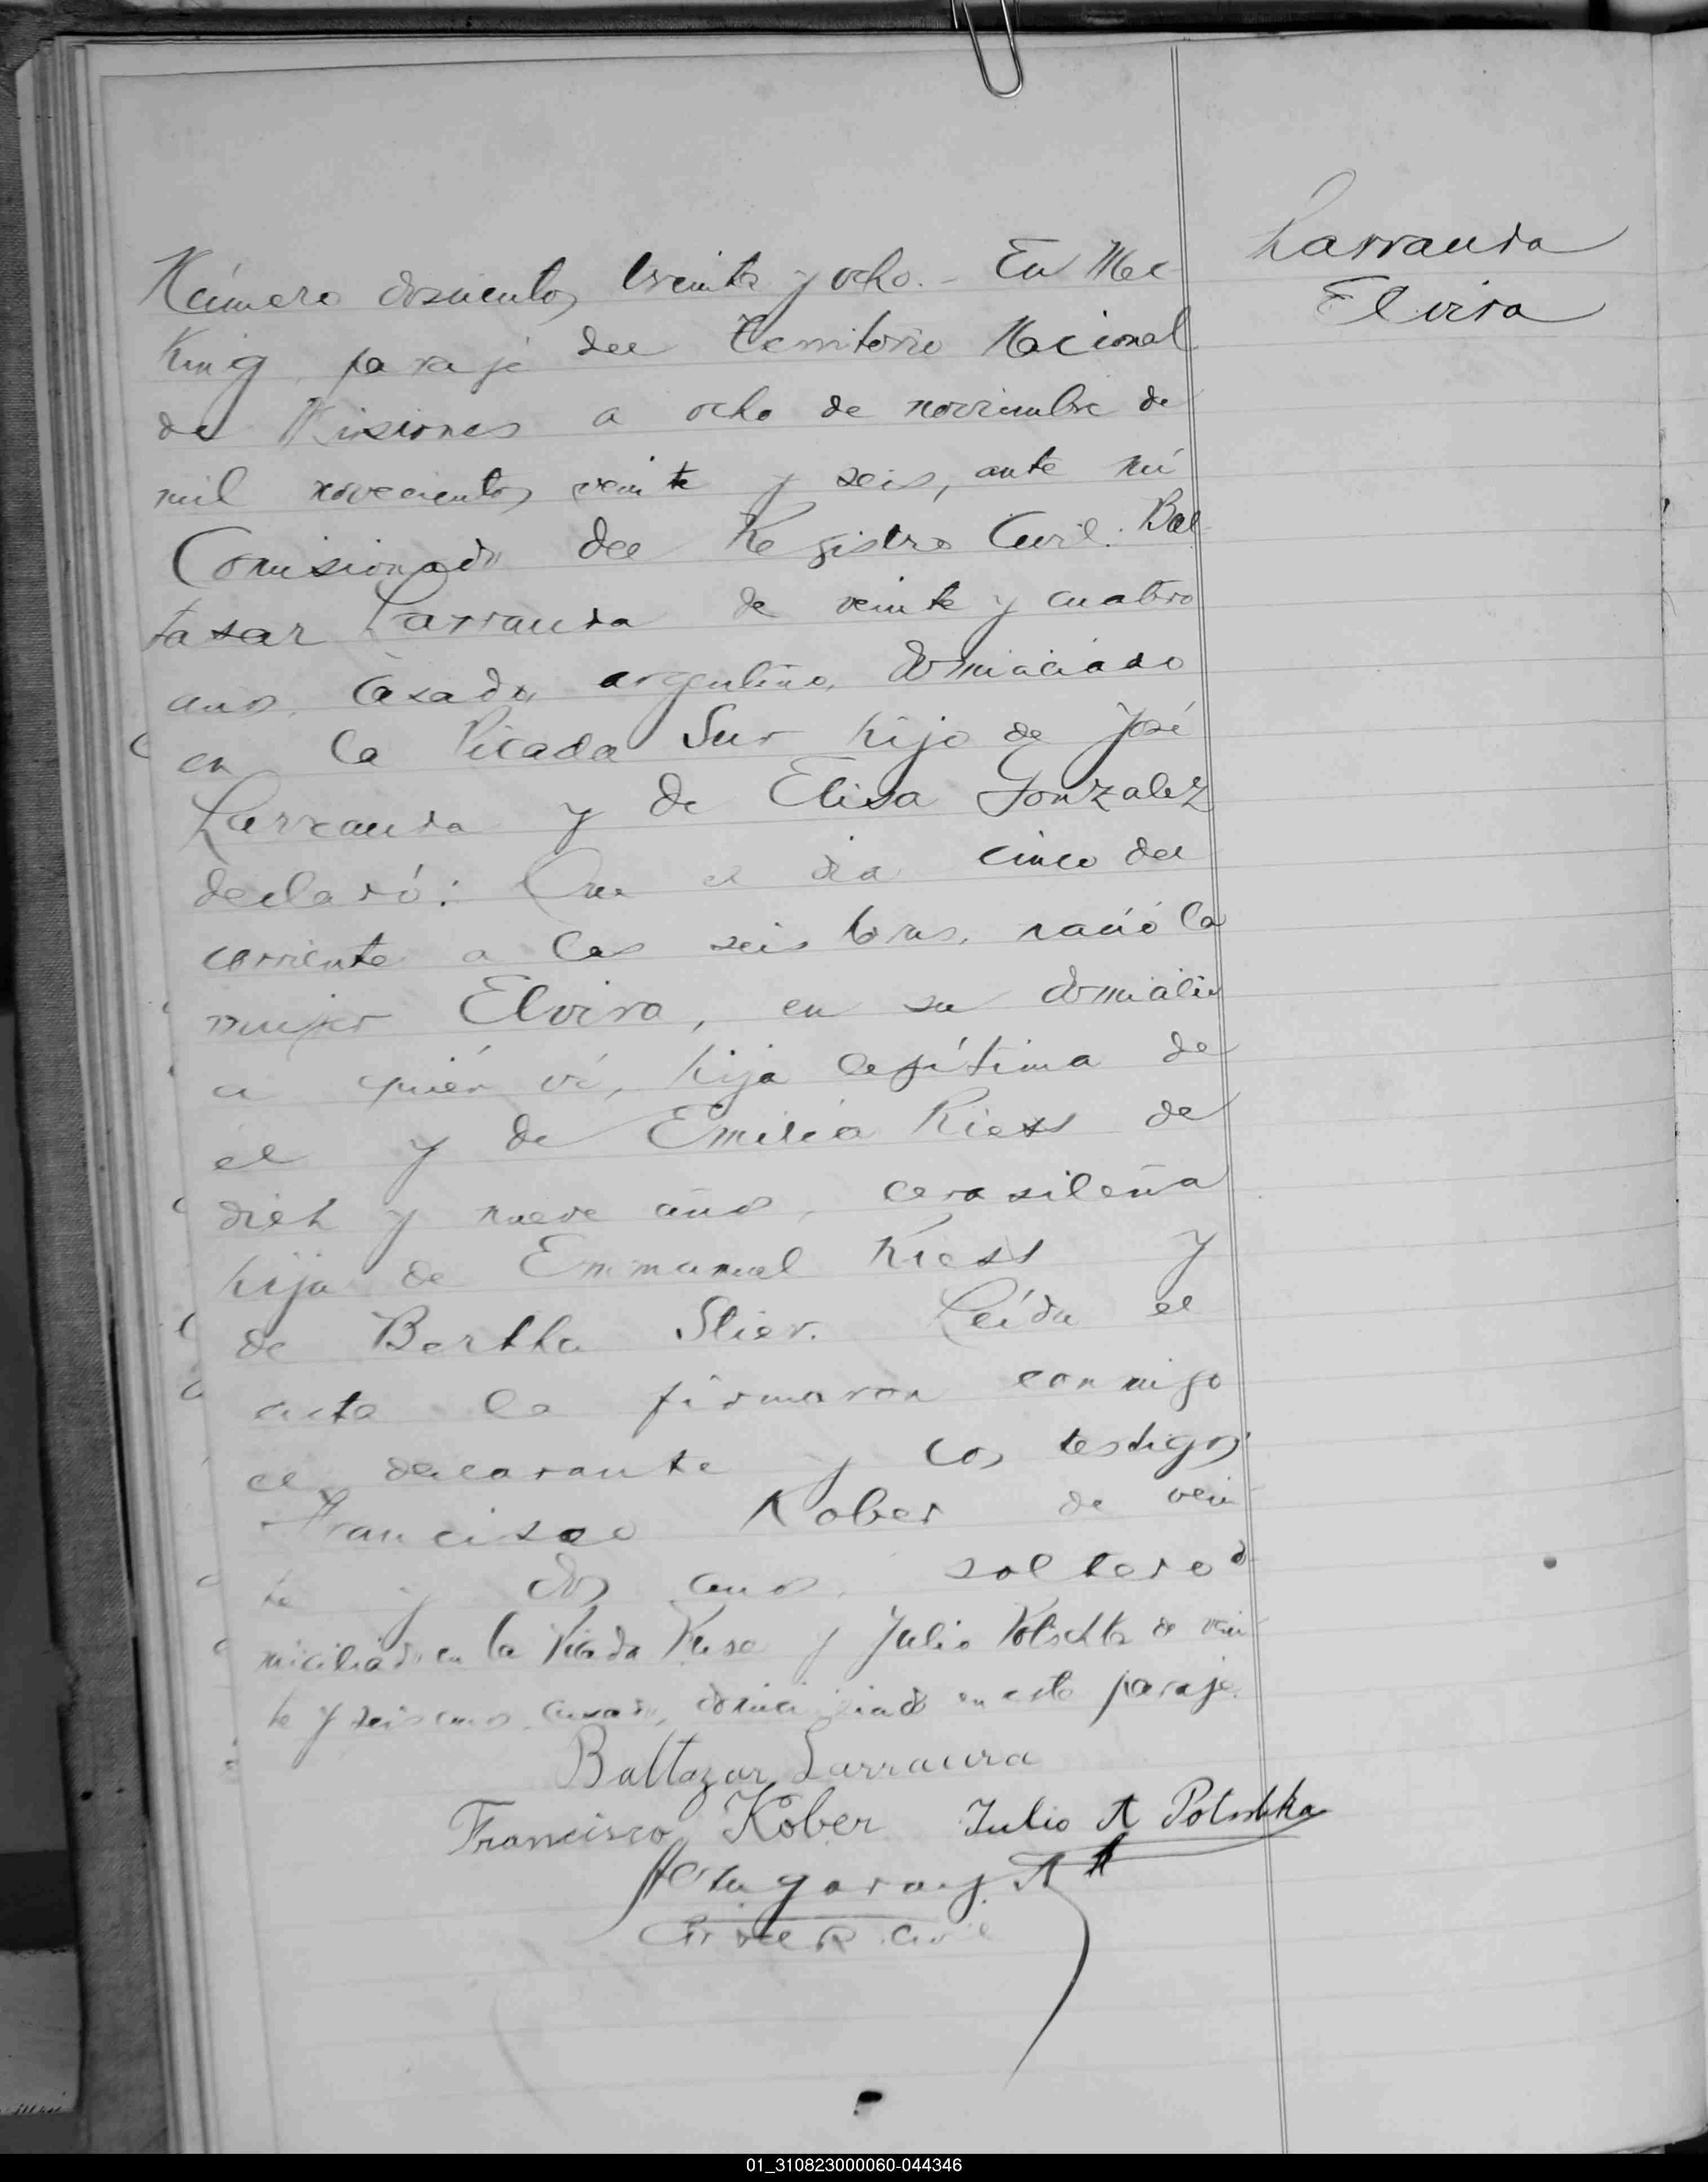 Larraura
Elvira
Número doscientos treinta y ocho. - En Mec
King, paraje del Territorio Nacional
de Misiones a ocho de noviembre de
mil novecientos veinte y seis, ante mí
Comisionado del Registro Civil. Bal
tasar Larraura de veinte y cuatro
años, casado, argentino, domiciliado
en la Picada Sur hijo de José
Larraura y de Elisa Gonzalez
declaró: Que el dia cinco del
corriente a las seis horas, nació la
mujer Elvira, en su domicilio
a quién ví, hija legítima de
el y de Emilia Kiess de
diez y nueve años, brasileña
hija de Emmanuel Kiess y
de Bertha Stier. Leída el
acta la firmaron conmigo
el declarante y los testigos
Francisco Kober de vein
te y dos años, soltero do
miciliado en la Picada Rusa y Julio Potschka de vein
te y seis años, casado, domiciliado en este paraje.
Baltazar Larraura
Francisco Kober Julio A Potschka